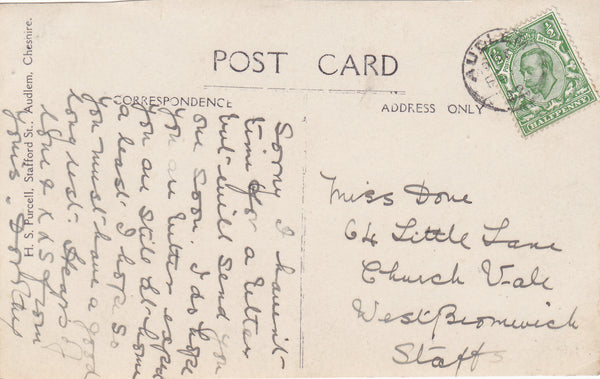 H. S. Purcell, Stafford St., Audlem, Cheshire.
POST CARD
CORRESPONDENCE
ADDRESS ONLY
AUDLEM
½
½
HALFPENNY
Sorry I haven't
time for a letter
but will send you
one soon. I do hope
you are better &
you are still at home
a least I hope so
you must have a good
long rest. Heaps of
love & xxs from
yours
Miss Done
64 Little Lane
Church Vale
West Bromwich
Staffs